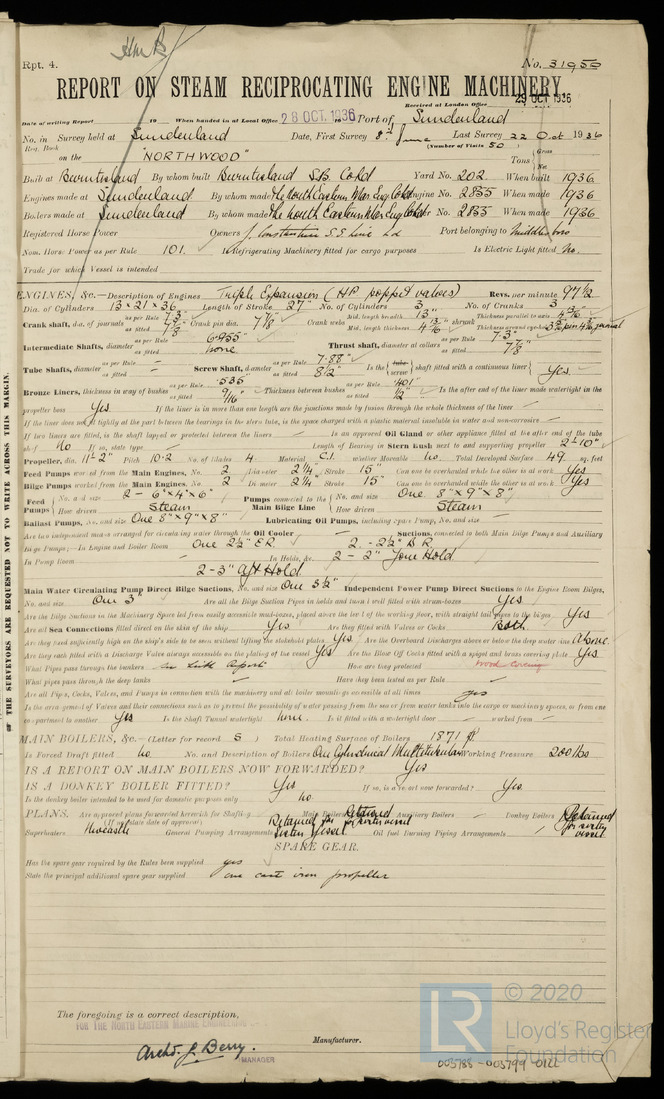 Rpt. 4.
No. 31950
REPORT ON STEAM RECIPROCATING ENGINE MACHINERY
Received at London Office 29 OCT 1936
Date of writing Report 19 When handed in at Local Office 28 OCT. 1936 Port of Sunderland
No. in Survey held at Sunderland Date, First Survey 8th June Last Survey 22 Oct 1936
Reg. Book (Number of Visits 50)
on the "NORTHWOOD" Tons Gross Net
Built at Burntisland By whom built Burntisland S.B. Co Ld Yard No. 202 When built 1936
Engines made at Sunderland By whom made The North Eastern Mar. Eng. Co Ld Engine No. 2835 When made 1936
Boilers made at Sunderland By whom made The North Eastern Mar Eng Co Ld Boiler No. 2835 When made 1936
Registered Horse Power Owners J. Constantine S.S. Line Ld Port belonging to Middlesbro
Nom. Horse Power as per Rule 101. Is Refrigerating Machinery fitted for cargo purposes Is Electric Light fitted No.
Trade for which Vessel is intended
ENGINES, &c.—Description of Engines Triple Expansion (HP poppet valves) Revs. per minute 97 1/2
Dia. of Cylinders 13 × 21 × 36 Length of Stroke 27" No. of Cylinders 3 No. of Cranks 3
Crank shaft, dia. of journals as per Rule 7.3" as fitted 7 7/8" Crank pin dia. 7 7/8" Crank webs Mid. length breadth 13" Mid. length thickness 4 13/16" shrunk Thickness parallel to axis 4 13/16"
Intermediate Shafts, diameter as per Rule 6.955" as fitted none Thrust shaft, diameter at collars as per Rule 7.3" as fitted 7 7/8"
Tube Shafts, diameter as per Rule as fitted Screw Shaft, diameter as per Rule 7.88" as fitted 8 1/2" Is the tube screw shaft fitted with a continuous liner Yes.
Bronze Liners, thickness in way of bushes as per Rule .535 as fitted 9/16" Thickness between bushes as per Rule .401" as fitted 1/2" Is the after end of the liner made watertight in the
propeller boss Yes If the liner is in more than one length are the junctions made by fusion through the whole thickness of the liner —
If the liner does not fit tightly at the part between the bearings in the stern tube, is the space charged with a plastic material insoluble in water and non-corrosive —
If two liners are fitted, is the shaft lapped or protected between the liners — Is an approved Oil Gland or other appliance fitted at the after end of the tube
shaft No If so, state type — Length of Bearing in Stern Bush next to and supporting propeller 2'-10"
Propeller, dia. 11'-2" Pitch 10.2 No. of blades 4 Material C.I. whether Moveable no. Total Developed Surface 49 sq. feet
Feed Pumps worked from the Main Engines, No. 2 Diameter 2 1/4" Stroke 15" Can one be overhauled while the other is at work Yes
Bilge Pumps worked from the Main Engines, No. 2 Diameter 2 1/4" Stroke 15" Can one be overhauled while the other is at work Yes
Feed Pumps No. and size 2 - 6" × 4" × 6" Pumps connected to the Main Bilge Line No. and size One 8" × 9" × 8"
How driven Steam How driven Steam
Ballast Pumps, No. and size One 8" × 9" × 8" Lubricating Oil Pumps, including Spare Pump, No. and size —
Are two independent means arranged for circulating water through the Oil Cooler — Suctions, connected to both Main Bilge Pumps and Auxiliary
Bilge Pumps:—In Engine and Boiler Room One 2 1/2" E.R. 2 - 2 1/2" B.R.
In Pump Room — In Holds, &c. 2 - 2" Fore Hold
2 - 3" Aft Hold
Main Water Circulating Pump Direct Bilge Suctions, No. and size One 3 1/2" Independent Power Pump Direct Suctions to the Engine Room Bilges,
No. and size One 3" Are all the Bilge Suction Pipes in holds and tunnel well fitted with strum-boxes Yes
Are the Bilge Suctions in the Machinery Space led from easily accessible mud-boxes, placed above the level of the working floor, with straight tail pipes to the bilges Yes
Are all Sea Connections fitted direct on the skin of the ship Yes Are they fitted with Valves or Cocks Both
Are they fixed sufficiently high on the ship's side to be seen without lifting the stokehold plates Yes Are the Overboard Discharges above or below the deep water line above.
Are they each fitted with a Discharge Valve always accessible on the plating of the vessel Yes Are the Blow Off Cocks fitted with a spigot and brass covering plate Yes
What Pipes pass through the bunkers How are they protected Wood covering
What pipes pass through the deep tanks Have they been tested as per Rule —
Are all Pipes, Cocks, Valves, and Pumps in connection with the machinery and all boiler mountings accessible at all times yes
Is the arrangement of Valves and their connections such as to prevent the possibility of water passing from the sea or from water tanks into the cargo or machinery spaces, or from one
compartment to another Yes Is the Shaft Tunnel watertight none. Is it fitted with a watertight door — worked from —
MAIN BOILERS, &c.—(Letter for record S) Total Heating Surface of Boilers 1871 ft
Is Forced Draft fitted no No. and Description of Boilers One Cylindrical Multitubular Working Pressure 200 lbs
IS A REPORT ON MAIN BOILERS NOW FORWARDED? Yes
IS A DONKEY BOILER FITTED? Yes If so, is a report now forwarded? Yes.
Is the donkey boiler intended to be used for domestic purposes only no
PLANS. Are approved plans forwarded herewith for Shafting Retained for sister vessel Main Boilers Retained for sister vessel Auxiliary Boilers — Donkey Boilers Retained for sister vessel
(If not state date of approval)
Superheaters Newcastle General Pumping Arrangements Sister Vessel Oil fuel Burning Piping Arrangements —
SPARE GEAR.
Has the spare gear required by the Rules been supplied yes
State the principal additional spare gear supplied one cast iron propeller
The foregoing is a correct description,
FOR THE NORTH EASTERN MARINE ENGINEERING
Archd. J. Berry.
MANAGER
Manufacturer.
OF THE SURVEYORS ARE REQUESTED NOT TO WRITE ACROSS THIS MARGIN.
LR
© 2020
Lloyd's Register
Foundation
003788-003799-0122